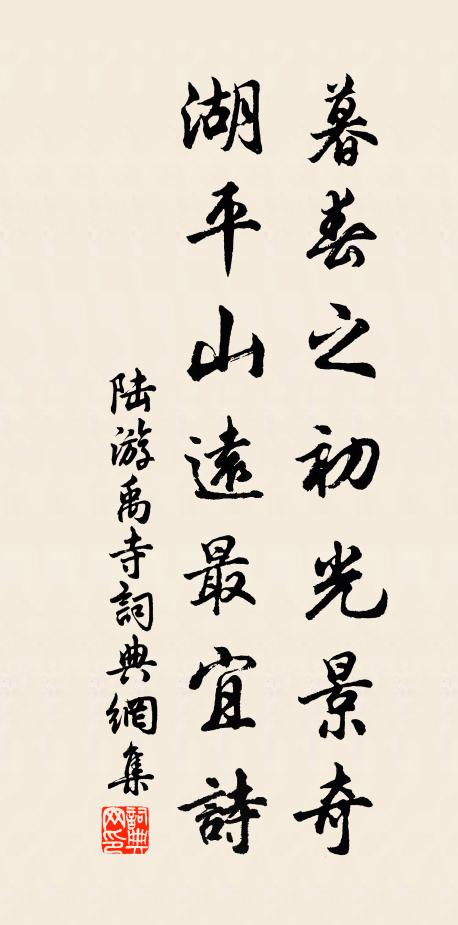 暮春之初光景奇
湖平山遠最宜詩
陆游禹寺詞典網集
詞典網印